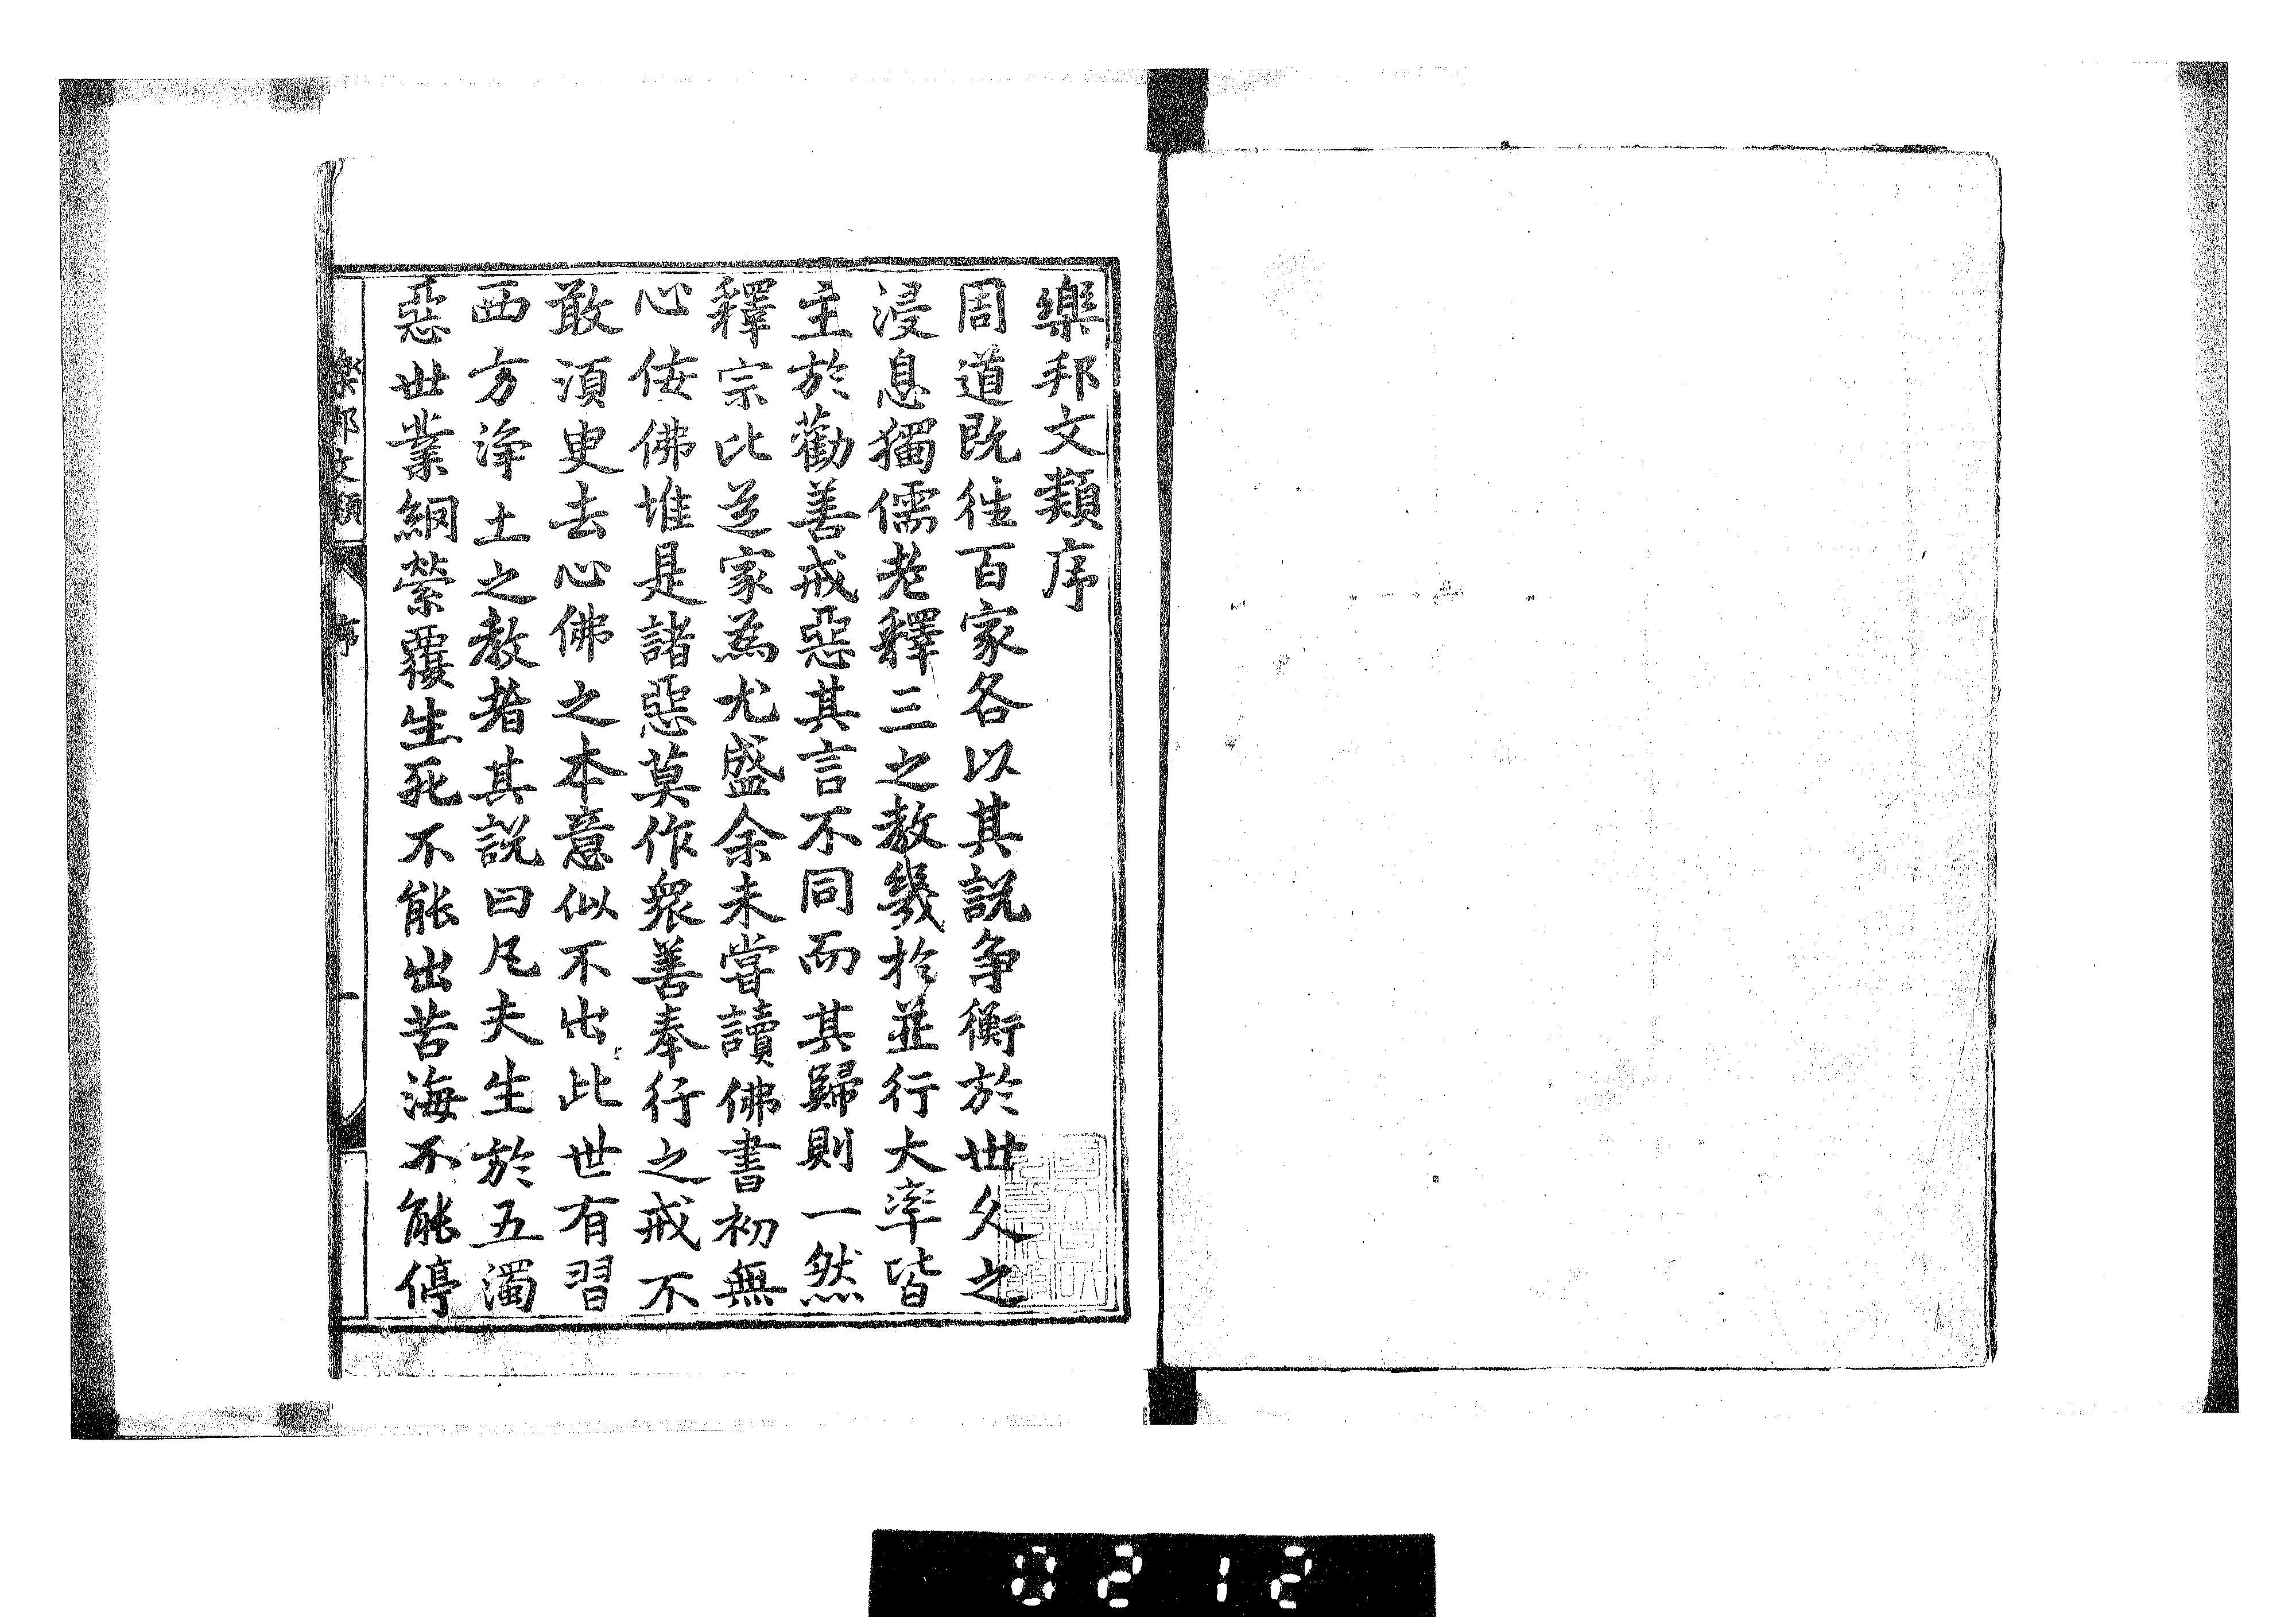 樂邦文類序
周道既往百家各以其説爭衡於世久之
浸息獨儒老釋三之教㡬於並行大率皆
主於勸善戒惡其言不同而其歸則一然
釋宗比迷家為尤盛余未嘗讀佛書初無
心佞佛堆是諸惡莫作衆善奉行之戒不
敢湏臾去心佛之本意似不出此世有習
西方浄土之教者其説曰凡夫生於五濁
惡世業綱縈覆生死不能出苦海不能停
樂邦文類
序
一
0212